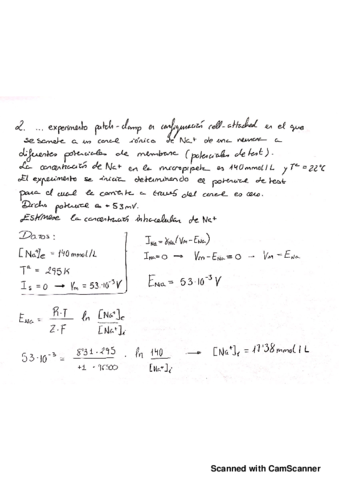 2. ... experimento patch-clamp en configuración cell-attached en el que
se somete a un canal iónico de Na⁺ de una neurona a
diferentes potenciales de membrana (potenciales de test).
La concentración de Na⁺ en la micropipeta es 140 mmol/L y Tª = 22ºC
El experimento se inicia determinando el potencial de test
para el cual la corriente a través del canal es cero.
Dicho potencial es +53mV.
Estímese la concentración intracelular de Na⁺
Datos:
[Na⁺]e = 140 mmol/L
Tª = 295K
Is = 0 → Vm = 53·10⁻³ V
INa = γNa (Vm - ENa)
INa = 0 → Vm - ENa = 0 → Vm = ENa
ENa = 53·10⁻³ V
ENa = R·T / Z·F ln [Na⁺]e / [Na⁺]i
53·10⁻³ = 8'31·295 / +1 · 96500 · ln 140 / [Na⁺]i → [Na⁺]i = 17'38 mmol/L
Scanned with CamScanner